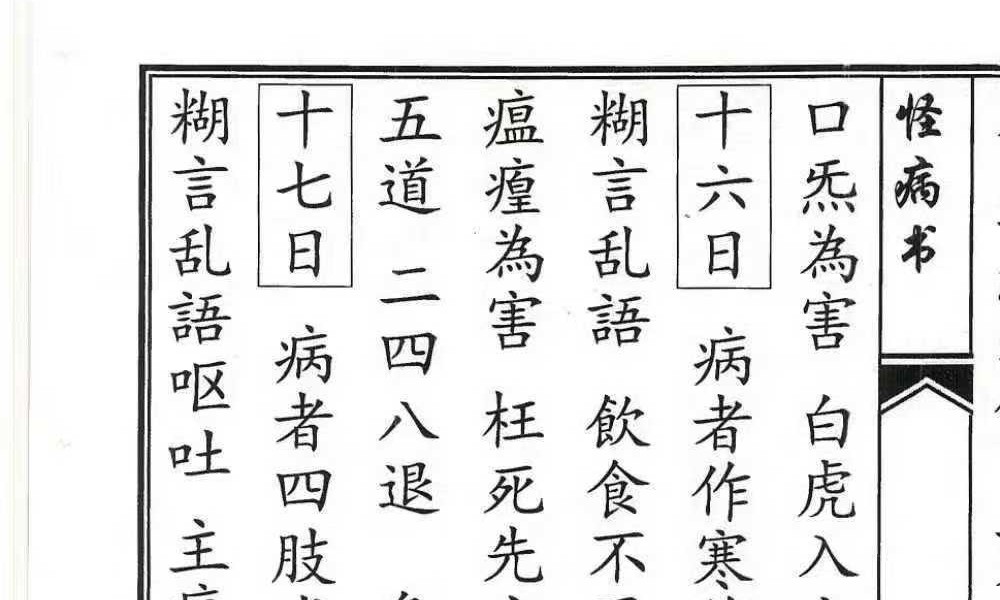 怪病书
口炁為害 白虎入
十六日 病者作寒
糊言乱語 飲食不
瘟瘟為害 枉死先
五道 二四八退
十七日 病者四肢
糊言乱語呕吐 主